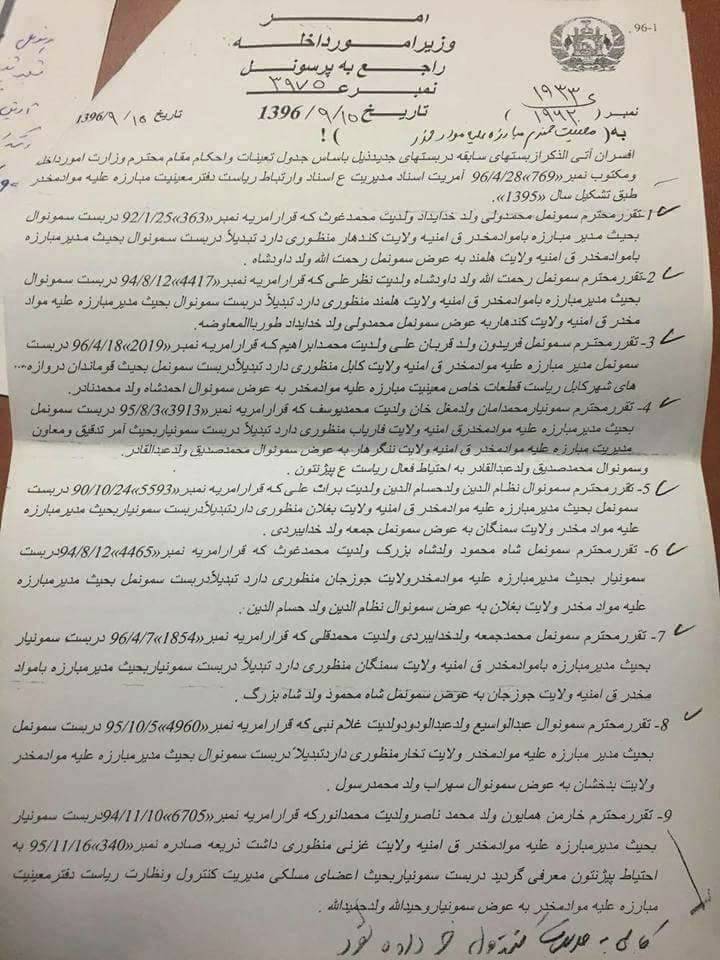 امر
96-1
وزیر امور داخله
راجع به پرسونل
نمبر ع ۳۹۷۵
تاریخ ۱۳۹۶/۹/۱۵
تاریخ ۱۳۹۶/۹/۱۵
نمبر (
به( معینیت محترم مبارزه علیه مواد مخدر )!
افسران آتی الذکر از بستهای سابقه دربستهای جدیدذیل باساس جدول تعینات واحکام مقام محترم وزارت امورداخل
ومکتوب نمبر«769» 96/4/28 آمریت اسناد مدیریت ع اسناد وارتباط ریاست دفترمعینیت مبارزه علیه موادمخدر
طبق تشکیل سال «1395».
1-تقررمحترم سمونمل محمدولی ولد خدایداد ولدیت محمدغوث که قرارامریه نمبر«363»92/1/25 دربست سمونوال
بحیث مدیر مبارزه باموادمخدر ق امنیه ولایت کندهار منظوری دارد تبدیلاً دربست سمونوال بحیث مدیرمبارزه
باموادمخدر ق امنیه ولایت هلمند به عوض سمونمل رحمت الله ولد داودشاه.
2-تقررمحترم سمونمل رحمت الله ولد داودشاه ولدیت نظرعلی که قرارامریه نمبر«4417»94/8/12 دربست سمونوال
بحیث مدیرمبارزه باموادمخدر ق امنیه ولایت هلمند منظوری دارد تبدیلاً دربست سمونوال بحیث مدیرمبارزه علیه مواد
مخدر ق امنیه ولایت کندهاربه عوض سمونمل محمدولی ولد خدایداد طورباالمعاوضه.
3- تقررمحترم سمونمل فریدون ولد قربان علی ولدیت محمدابراهیم که قرارامریه نمبر«2019»96/4/18 دربست
سمونمل مدیر مبارزه علیه موادمخدر ق امنیه ولایت کابل منظوری دارد تبدیلاًدربست سمونمل بحیث قوماندان دروازه
های شهرکابل ریاست قطعات خاص معینیت مبارزه علیه موادمخدر به عوض سمونوال احمدشاه ولد محمدنادر.
4- تقررمحترم سمونیارمحمدامان ولدمغل خان ولدیت محمدیوسف که قرارامریه نمبر«3913»95/8/3 دربست سمونمل
بحیث مدیرمبارزه علیه موادمخدرق امنیه ولایت فاریاب منظوری دارد تبدیلاً دربست سمونیاربحیث آمر تدقیق ومعاون
مدیریت مبارزه علیه موادمخدر ق امنیه ولایت ننگرهار به عوض سمونوال محمدصدیق ولدعبدالقادر.
وسمونوال محمدصدیق ولدعبدالقادر به احتیاط فعال ریاست ع پیژنتون .
5- تقررمحترم سمونوال نظام الدین ولدحسام الدین ولدیت برات علی که قرارامریه نمبر«5593»90/10/24 دربست
سمونمل بحیث مدیرمبارزه علیه موادمخدر ق امنیه ولایت بغلان منظوری داردتبدیلاًدربست سمونیاربحیث مدیرمبارزه
علیه مواد مخدر ولایت سمنگان به عوض سمونمل جمعه ولد خدایبردی .
6- تقررمحترم سمونمل شاه محمود ولدشاه بزرک ولدیت محمدغوث که قرارامریه نمبر«4465»94/8/12دربست
سمونیار بحیث مدیرمبارزه علیه موادمخدرولایت جوزجان منظوری دارد تبدیلاًدربست سمونمل بحیث مدیرمبارزه
علیه مواد مخدر ولایت بغلان به عوض سمونوال نظام الدین ولد حسام الدین .
7- تقررمحترم سمونمل محمدجمعه ولدخدایبردی ولدیت محمدقلی که قرارامریه نمبر«1854»96/4/7 دربست سمونیار
بحیث مدیرمبارزه باموادمخدر ق امنیه ولایت سمنگان منظوری دارد تبدیلاً دربست سمونیاربحیث مدیرمبارزه بامواد
مخدر ق امنیه ولایت جوزجان به عوض سمونمل شاه محمود ولد شاه بزرگ .
8- تقررمحترم سمونوال عبدالواسیع ولدعبدالودودولدیت غلام نبی که قرارامریه نمبر«4960»95/10/5 دربست سمونمل
بحیث مدیر مبارزه علیه موادمخدر ولایت تخارمنظوری داردتبدیلاً دربست سمونوال بحیث مدیرمبارزه علیه موادمخدر
ولایت بدخشان به عوض سمونوال سهراب ولد محمدرسول .
9- تقررمحترم خارمن همایون ولد محمد ناصرولدیت محمدانورکه قرارامریه نمبر«6705»94/11/10دربست سمونیار
بحیث مدیرمبارزه علیه موادمخدر ق امنیه ولایت غزنی منظوری داشت ذریعه صادره نمبر«340»95/11/16 به
احتیاط پیژنتون معرفی گردید دربست سمونیاربحیث اعضای مسلکی مدیریت کنترول ونظارت ریاست دفترمعینیت
مبارزه علیه موادمخدر به عوض سمونیاروحیدالله ولدحمیدالله.